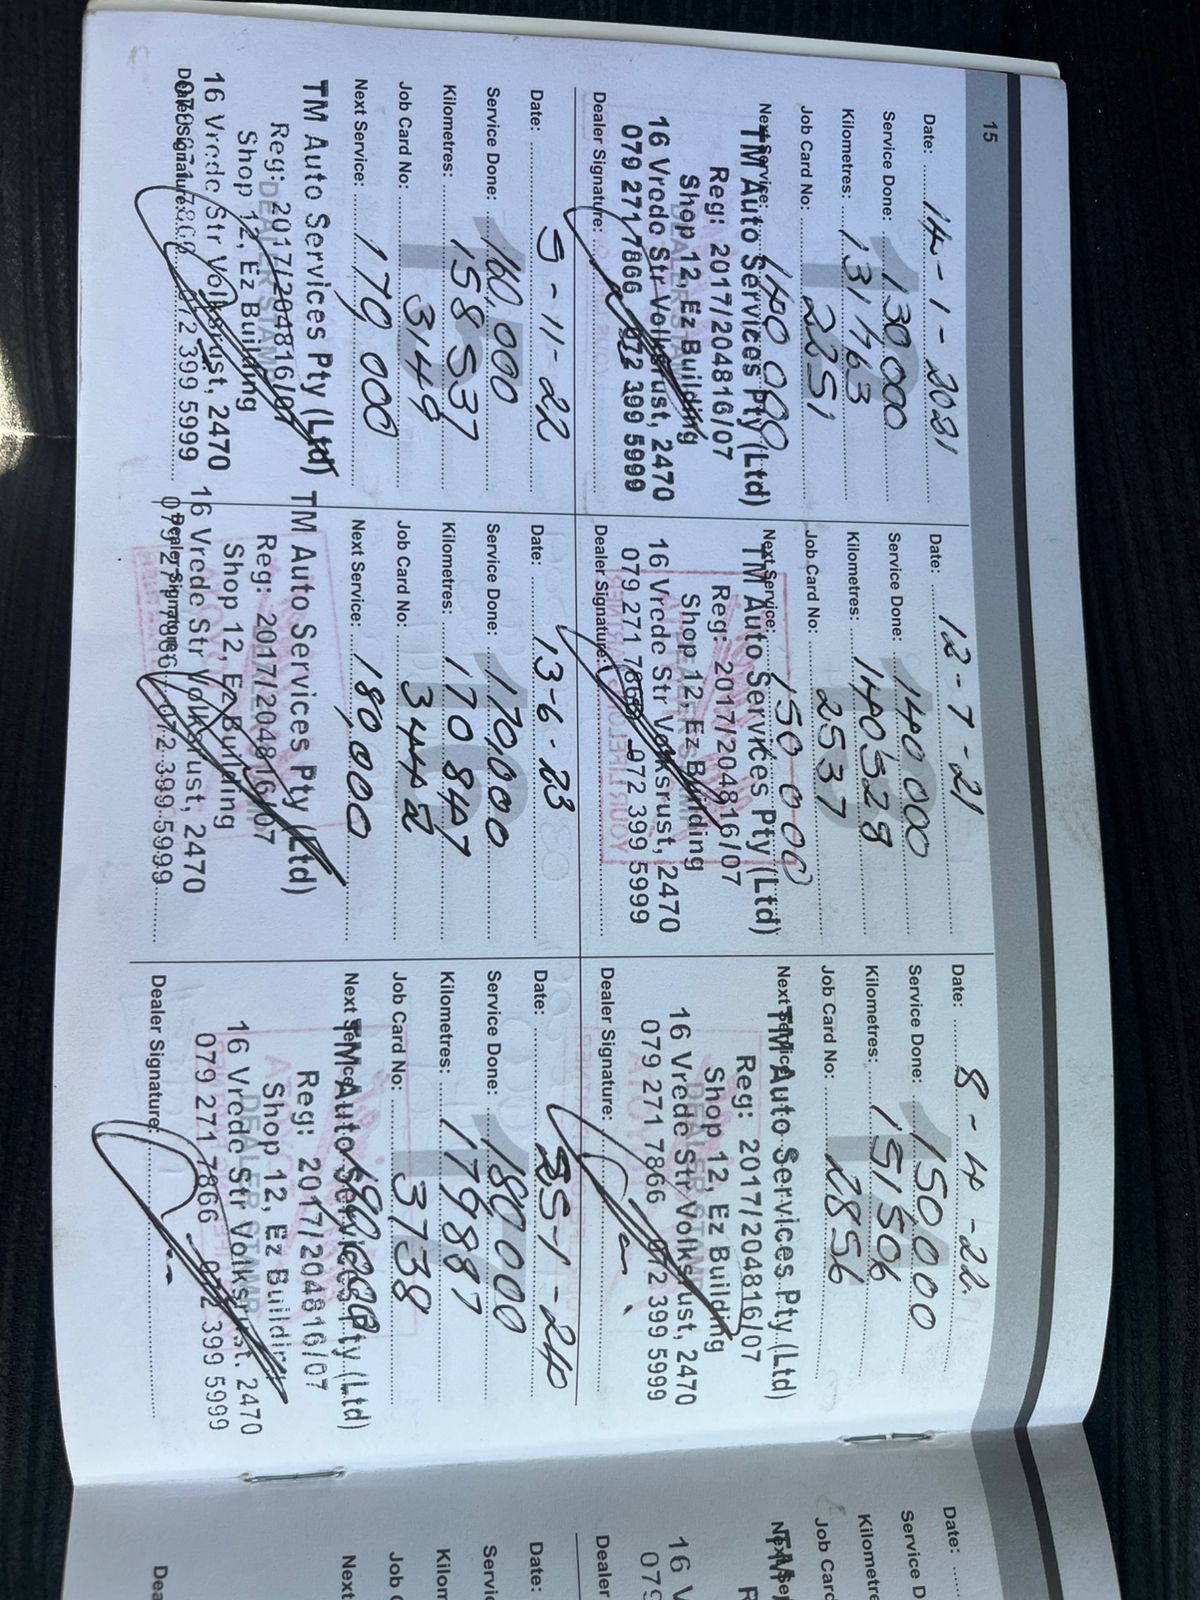 15
Date: 14-1-2021
Service Done: 130 000
Kilometres: 131763
Job Card No: 2251
Next Service: 140 000
TM Auto Services Pty (Ltd)
Reg: 2017/204816/07
Shop 12, Ez Building
16 Vrede Str Volksrust, 2470
079 271 7866 072 399 5999
Dealer Signature:
Date: 12-7-21
Service Done: 140 000
Kilometres: 140328
Job Card No: 2537
Next Service: 150 000
TM Auto Services Pty (Ltd)
Reg: 2017/204816/07
Shop 12, Ez Building
16 Vrede Str Volksrust, 2470
079 271 7866 072 399 5999
Dealer Signature:
Date: 8-4-22
Service Done: 150 000
Kilometres: 151506
Job Card No: 2856
Next Service:
TM Auto Services Pty (Ltd)
Reg: 2017/204816/07
Shop 12, Ez Building
16 Vrede Str Volksrust, 2470
079 271 7866 072 399 5999
Dealer Signature:
15
Date: 5-11-22
Service Done: 160,000
Kilometres: 158537
Job Card No: 3149
Next Service: 170 000
TM Auto Services Pty (Ltd)
Reg: 2017/204816/07
DEALER STAMP
Shop 12, Ez Building
16 Vrede Str Volksrust, 2470
079 271 7866 072 399 5999
Dealer Signature:
16
Date: 13-6-23
Service Done: 170,000
Kilometres: 170847
Job Card No: 3442
Next Service: 180,000
TM Auto Services Pty (Ltd)
Reg: 2017/204816/07
Shop 12, Ez Building
16 Vrede Str Volksrust, 2470
079 271 7866 072 399 5999
Dealer Signature:
Date: 25-1-24
Service Done: 180 000
Kilometres: 179887
Job Card No: 3738
Next Service:
TM Auto Services Pty (Ltd)
Reg: 2017/204816/07
Shop 12, Ez Building
DEALER STAMP
16 Vrede Str Volksrust, 2470
079 271 7866 072 399 5999
Dealer Signature:
Date:
Service D
Kilometre
Job Card
16 V
079
Dealer
Date:
Servic
Kilom
Job C
Next
Dea